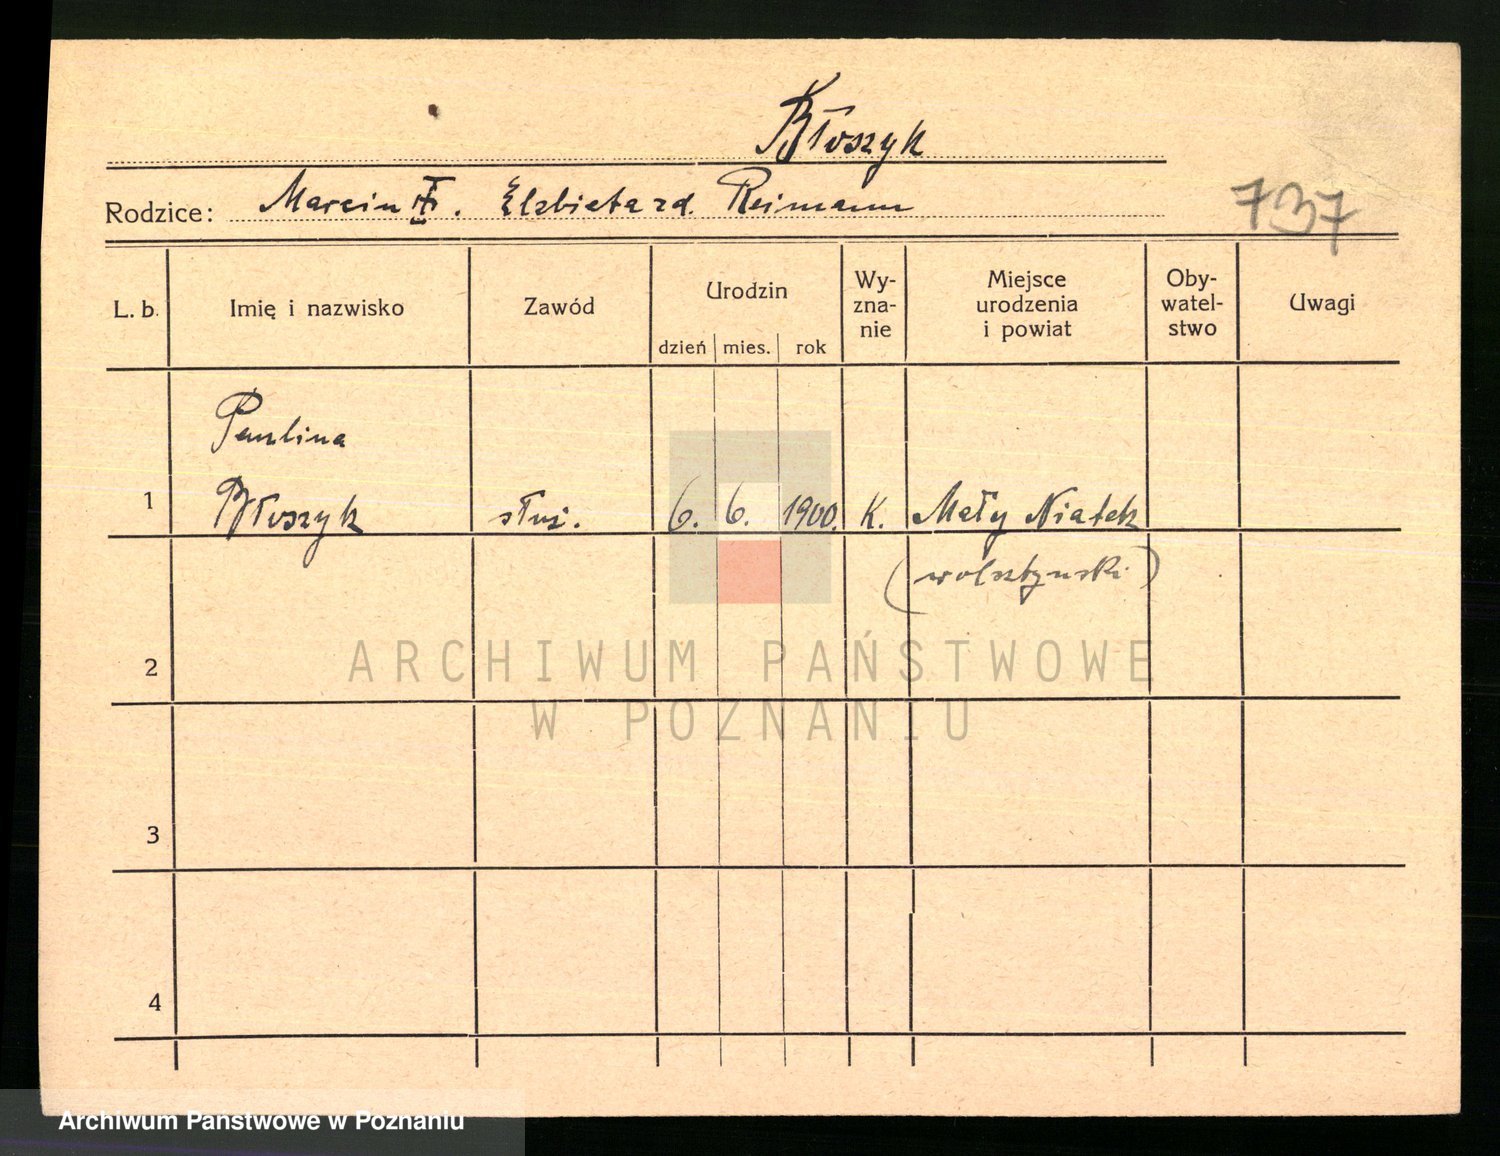 Błoszyk
Rodzice: Marcin . Elżbieta zd. Reimann
737
L. b. Imię i nazwisko Zawód Urodzin dzień mies. rok Wy-zna-nie Miejsce urodzenia i powiat Oby-watel-stwo Uwagi
Paulina
1 Błoszyk służ. 6. 6. 1900. K. Mały Niałek
(wolsztyński)
2
ARCHIWUM PAŃSTWOWE
W POZNANIU
3
4
Archiwum Państwowe w Poznaniu